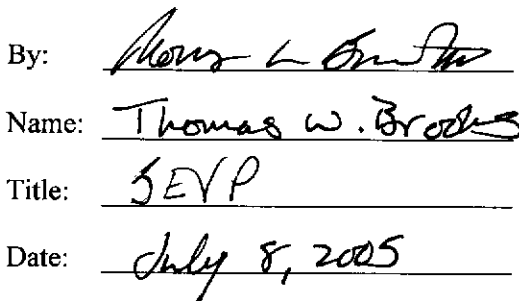 By:
Name: Thomas W. Brooks
Title: SEVP
Date: July 8, 2005